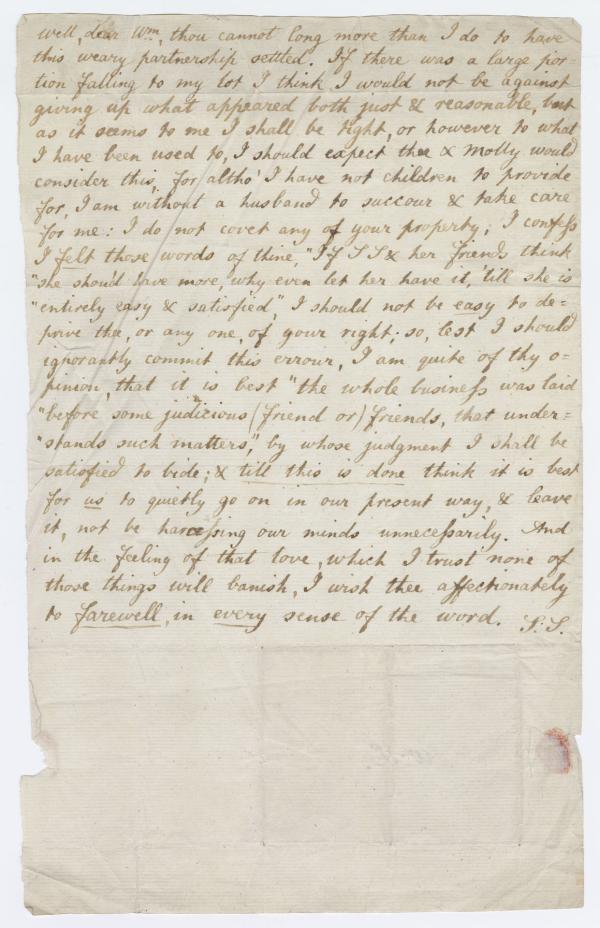 well, dear Wm, thou cannot long more than I do to have
this weary partnership settled. If there was a large por=
tion falling to my lot I think I would not be against
giving up what appeared both just & reasonable, but
as it seems to me I shall be tight, or however to what
I have been used to, I should expect thee & Molly would
consider this, for altho' I have not children to provide
for, I am without a husband to succour & take care
for me: I do not covet any of your property; I confess
I felt those words of thine, "If S S & her friends think
"she shou'd have more, why even let her have it, 'till she is
"entirely easy & satisfied", I should not be easy to de=
prive thee, or any one, of your right; so, lest I should
ignorantly commit this errour, I am quite of thy o=
pinion, that it is best "the whole business was laid
"before some judicious (friend or) friends, that under=
"stands such matters", by whose judgment I shall be
satisfied to bide; & till this is done think it is best
for us to quietly go on in our present way, & leave
it, not be harassing our minds unnecessarily. And
in the feeling of that love, which I trust none of
those things will banish, I wish thee affectionately
to farewell, in every sense of the word. S. S.